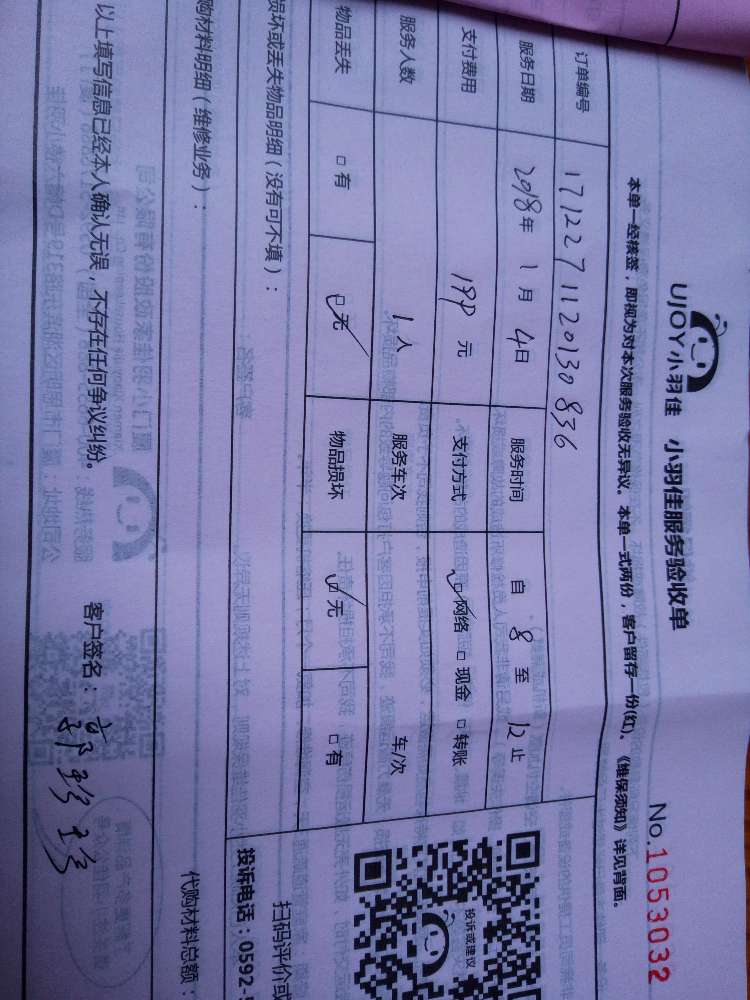 UJOY小羽佳 小羽佳服务验收单
No.1053032
本单一经核签，即视为对本次服务验收无异议。本单一式两份，客户留存一份(红)。《维保须知》详见背面。
订单编号 1712271120130836
服务日期 2018年 1月 4日 服务时间 自 8 至 12 止
支付费用 199 元 支付方式 ☑网络 □现金 □转账
服务人数 1人 服务车次 车/次
物品丢失 □有 ☑无 物品损坏 ☑无 □有
损坏或丢失物品明细（没有可不填）：
购材料明细（维修业务）：
投诉或建议
扫码评价或
投诉电话：0592-5
代购材料总额：
以上填写信息已经本人确认无误，不存在任何争议纠纷。 客户签名：